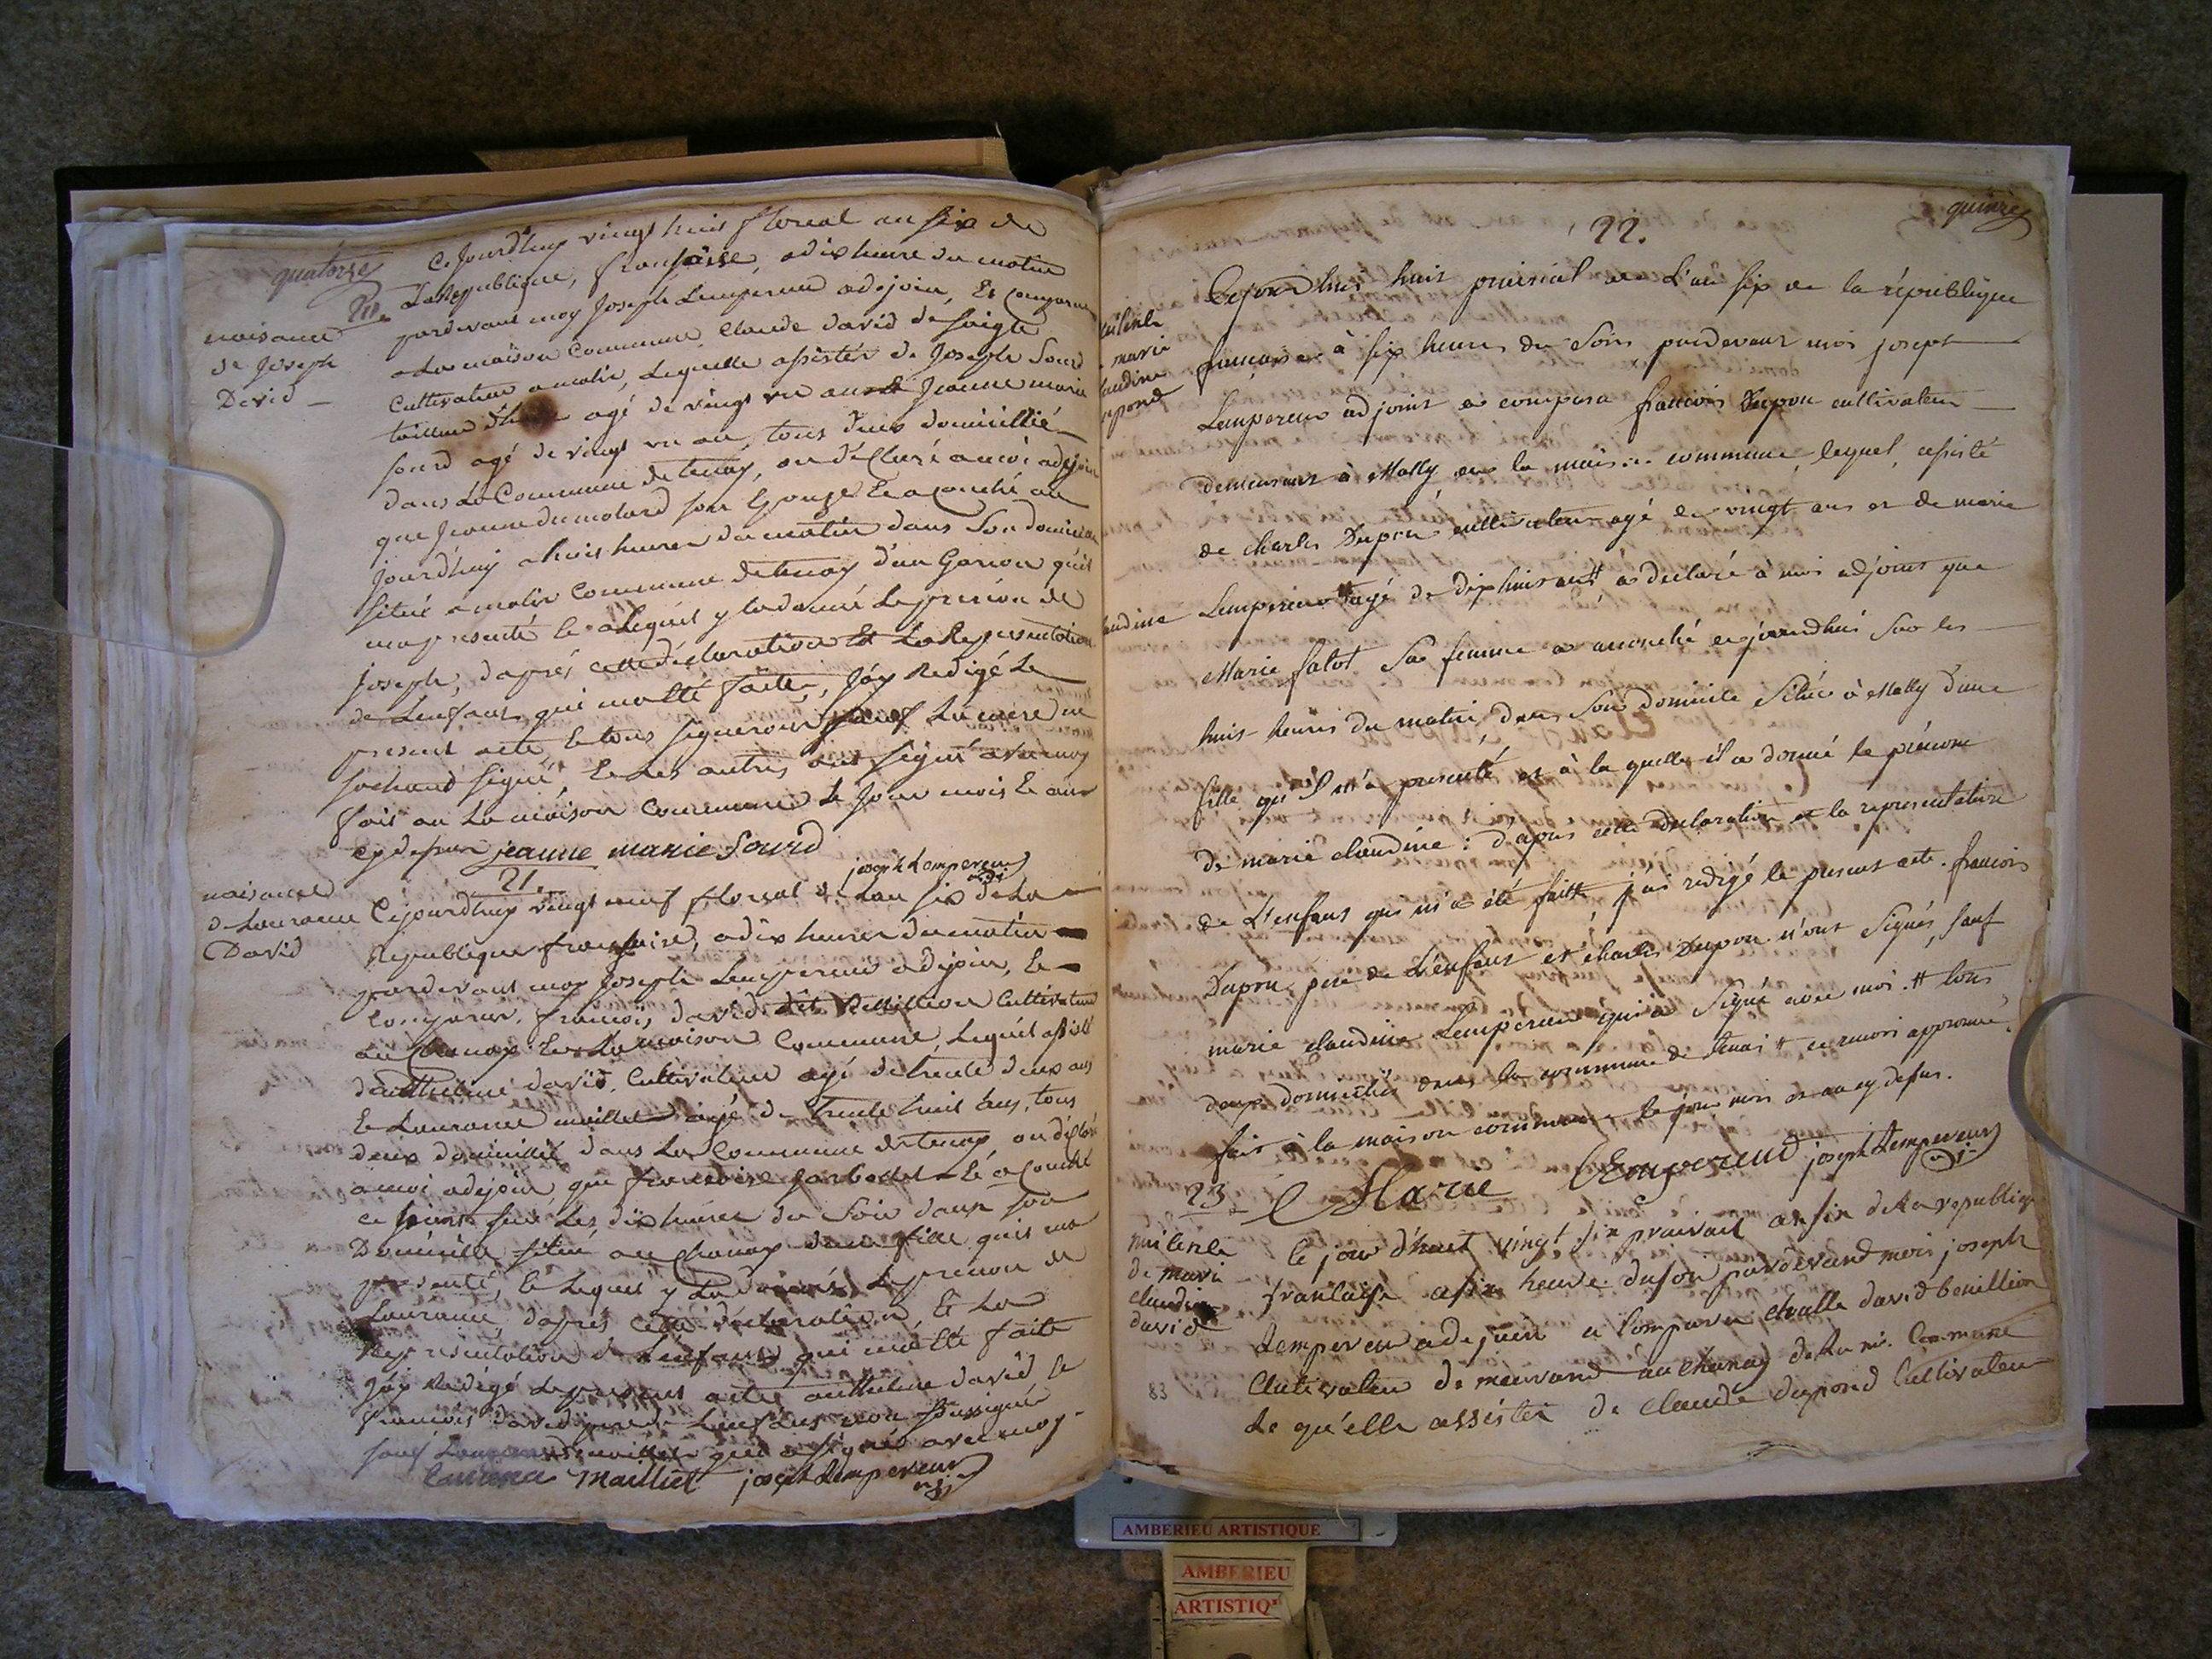 quatorze
20.
naisance
de Joseph
David
Cejourdhuy vingt huit floreal an six de
La Republique, franfaise, adix heure du matin
pardevant moy Joseph Lempereur adejoin, Et Comparu
a La maison Commune Claude david de faigle
Cultivateur a malix, Lequelle assister de Joseph Sourd
tailleur agé de vingt un ans et Jeanne marie
sourd agé de vingt un an, tous deux domicillié
dans La Commune detenay, on déClaré a moi adejoin
que Jeanne dumolard son Epouze Le acouché au
jourdhuy a huis heures du matin dans Son domicile
situé a malix Commune detenay d'un Garcon quil
ma presenté le aLequel y la donné Le prenon de
Joseph, d'aprés cette déclaration Et La Representation
de Lenfant, qui ma Eté faite, Jáy Redigé Le
present acte, Et tous signeront sauf La mere ne
sachand signé, Et Les autres ont signé avec moy
fait an La maison Commune Le Jour mois Et an
cy desus jeanne marie Sourd
joseph Lempereur adj
21.
naisance
de Laurance
David
Cejourdhuy vingt neuf floreal de Lan six de La
Republique franfaise, adix heures du matin
pardevant moy Joseph Lempereur adejoin, Et
Comparu, francois david dit Cultivateur
au Chanay En La maison Commune, Lequel assisté
dantheline david, Cultivateur agé detrente deux ans
Et Laurance maillet agé de trente huit ans, tous
deux domicillié dans La Commune detenay, on déClaré
a moi adejoin que francoise Jarbodet Et acouché
ce jour sur Les dix heures du Soir dans son
Domicille situé au Chanay d'une fille quil ma
presenté, Et Lequel y La donné Le prenon de
Laurance, daprés cette déclaration, Et La
Representation de Lenfans qui ma Eté faite
Jáy Redigé Le present acte, antheline david Et
francois david pere de Lenfans non sussigné
sauf Laurance maillet qui a signé avec moy
Laurance Mailliet joseph Lempereur adj
quinze
22.
marie
claudine
dupond
Cejourdhui huit prairial de L'an six de la république
francaise à six heures du Soir pardevant moi joseph
Lempereur adjoint a comparu francois Dupon cultivateur
demeurant à Mally en la maison commune, lequel, assisté
de charles Dupon cultivateur agé de vingt ans et de marie
claudine Lempereur agé de dix huit ans # a declaré à moi adjoint que
Marie falot Sa femme a accouché cejourdhui Sur les
huit heures du matin, dans Son domicile Situé à Mally d'une
fille qu'il m'a presenté et à la quelle il a donné le prénom
de marie claudine : d'apres cette declaration et la representation
de L'enfant qui m'a été faitte, j'ai redigé le present acte. francois
Dupon pere de L'enfant et charles Dupon n'ont Signés, Sauf
marie claudine Lempereur qui a Signé avec moi. # tous
deux domiciliés dans la commune de tenai # ce renvoi approuvé.
fait à la maison commune le jour mois et an cy desus.
Marie Lempereur joseph Lempereur adj
23
naisence
de mari
claudine
david
83
le jour d'huit vingt six prairail an six de La republiq
franfaise asix heure dusoir pardevand moi joseph
Lempereur adejoin a Comparu challe david bouillion
Cultivateur de meurand au chanay de La m. Commune
Le qu'elle assister de claude dupond Cultivateur
AMBERIEU ARTISTIQUE
AMBERIEU
ARTISTIQ